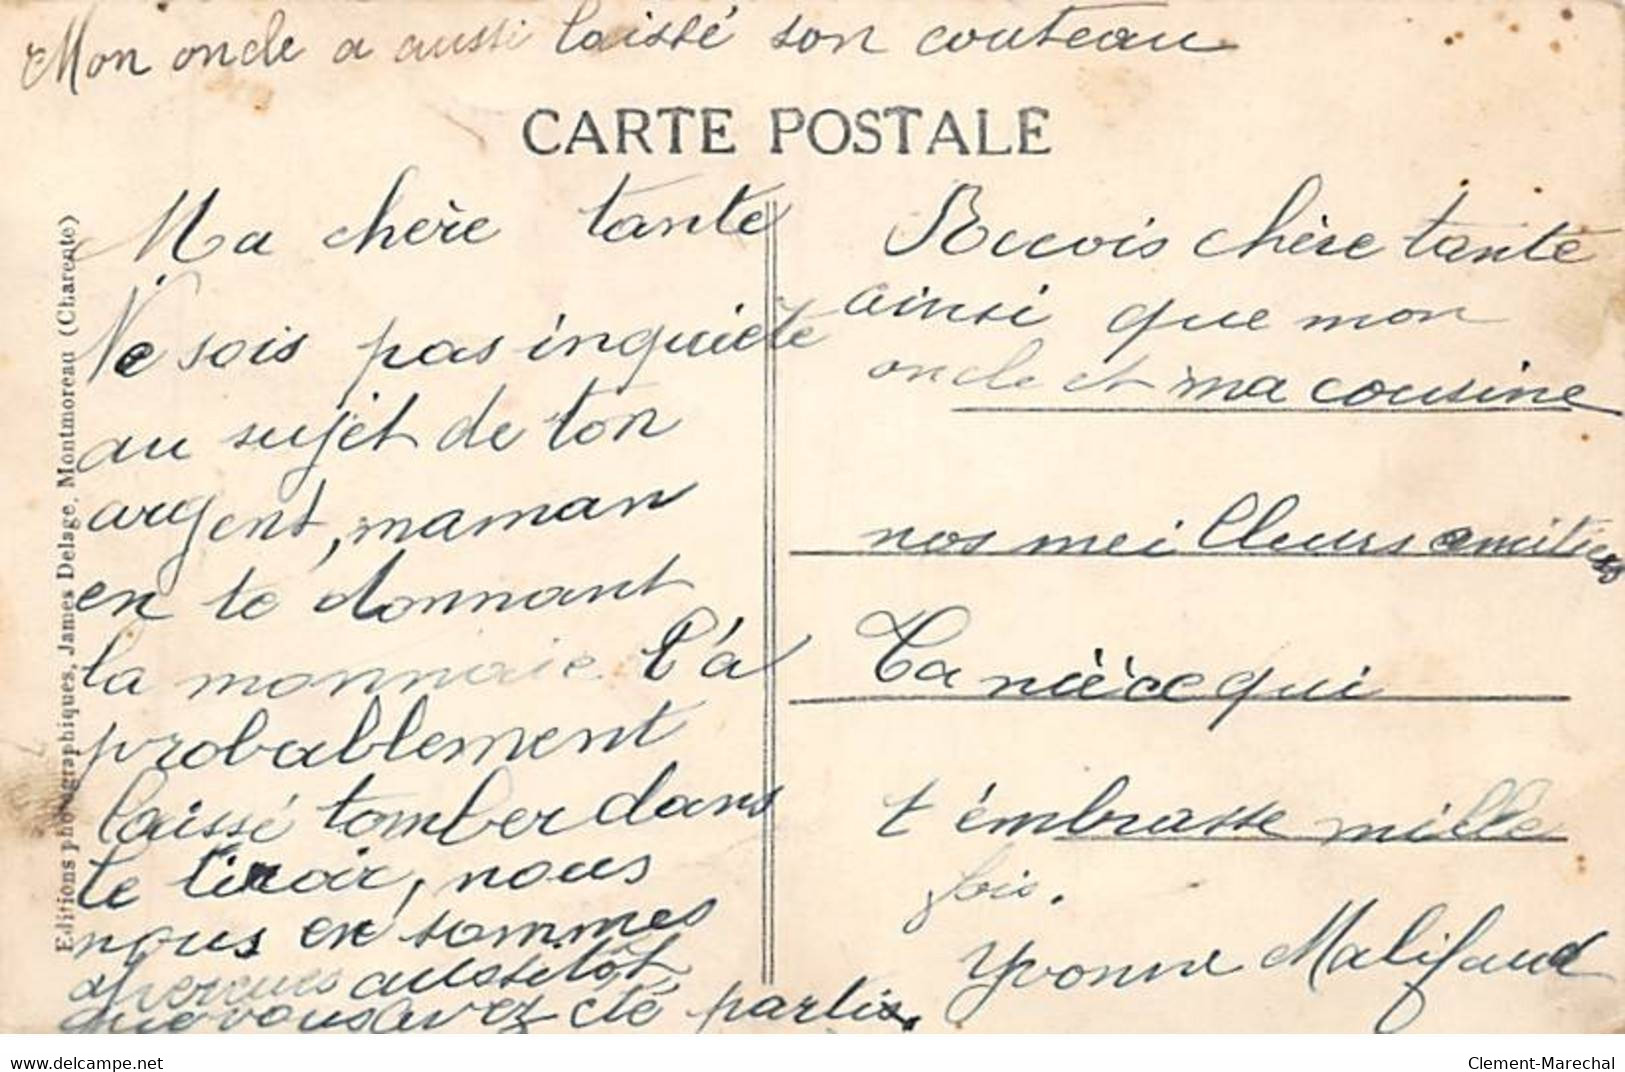 Mon oncle a aussi laissé son couteau
CARTE POSTALE
Ma chère tante
Ne sois pas inquiète
au sujet de ton
argent, maman
en te donnant
la monnaie t'a
probablement
laissé tomber dans
le tiroir, nous
nous en sommes
aperçues aussitôt
que vous avez été parties.
Recois chère tante
ainsi que mon
oncle et ma cousine
nos meilleurs amitiés
Ta nièce qui
t'émbrasse mille
fois.
Yvonne Malifaud
Editions photographiques, James Delage, Montmoreau (Charente)
www.delcampe.net
Clement-Marechal